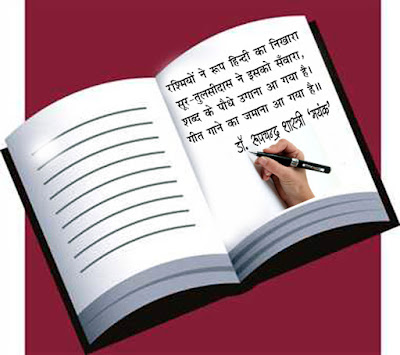 रश्मियों ने रूप हिन्दी का निखारा
सूर-तुलसीदास ने इसको सँवारा,
शब्द के पौधे उगाना आ गया है।
गीत गाने का जमाना आ गया है॥
डॉ. रूपचन्द्र शास्त्री 'मयंक'